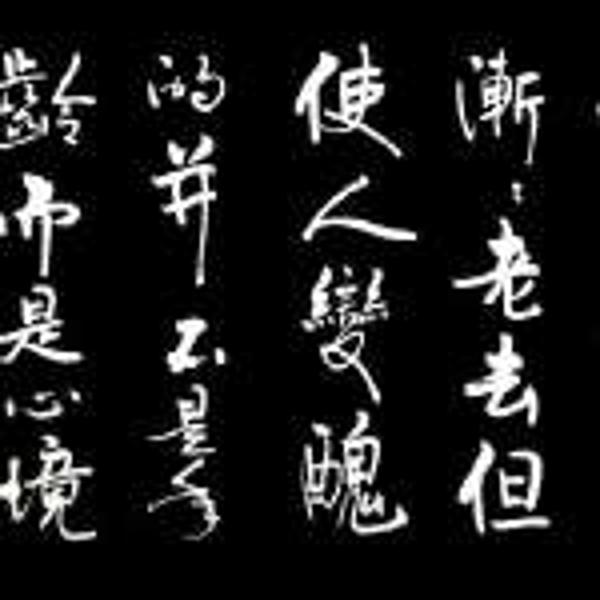 漸〻老去但
使人變醜
的并不是年
齡而是心境